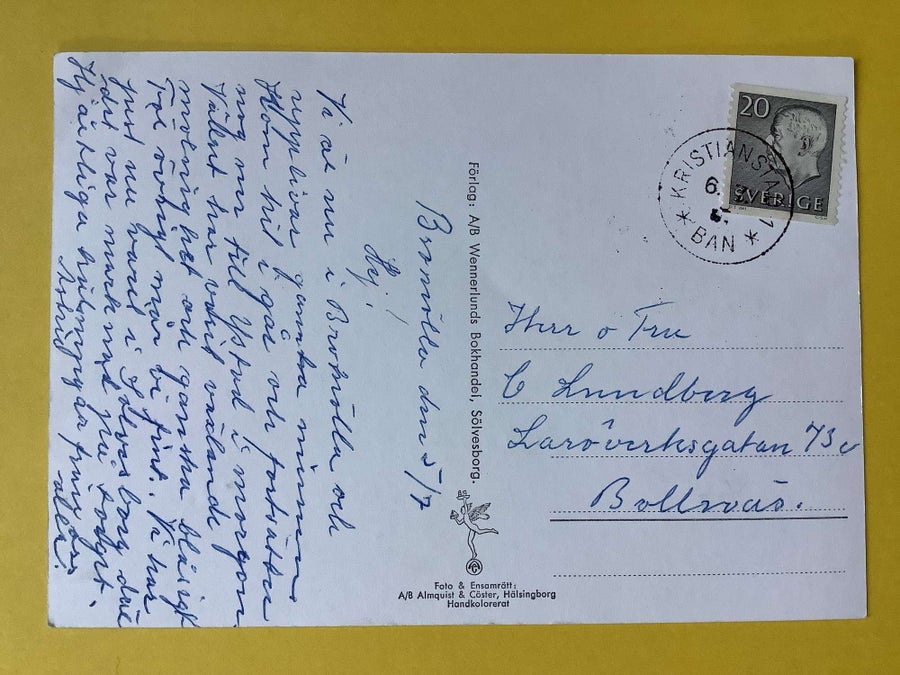 Bromölla den 5/7
Hej!
Vi är nu i Bromölla och
upplivar gamla minnen
Kom hit i går och fortsätter
nog ner till Ystad i morgon.
Vädret har varit växlande
molnighet och ganska blåsigt
För övrigt mår vi fint. Vi har
just nu varit i Sölvesborg där
det var marknad på torget.
Hjärtliga hälsningar från oss
alla.
Förlag: A/B Wennerlunds Bokhandel, Sölvesborg.
Foto & Ensamrätt:
A/B Almquist & Cöster, Hälsingborg
Handkolorerat
20
SVERIGE
KRISTIANSTAD
6.
* BAN *
Herr o Fru
C Lundberg
Laröverksgatan 73 c
Bollnäs.